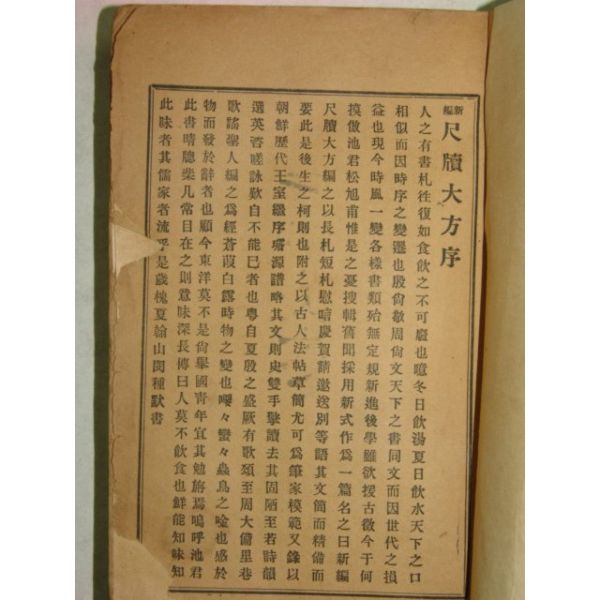 新編尺牘大方序
人之有書札徃復如食飮之不可廢也噫冬日飮湯夏日飮水天下之口
相似而因時序之變遷也殷尙敬周尙文天下之書同文而因世代之損
益也現今時風一變各樣書類殆無定規新進後學雖欲援古徵今于何
摸倣池君松旭甫惟是之憂搜輯舊聞採用新式作爲一篇名之曰新編
尺牘大方編之以長札短札慰唁慶賀請邀送別等語其文簡而精備而
要此是後生之柯則也附之以古人法帖草簡尤可爲筆家模範又錄以
朝鮮歷代王室繼序璿源譜略其文則史雙手擎讀去其固陋至若詩韻
選英咨嗟詠歎自不能已者也粤自夏殷之盛厥有歌頌至周大備里巷
歌謠聖人編之爲經蒼葭白露時物之變也喓々蠻々蟲鳥之唫也感於
物而發於辭者也顧今東洋莫不是尙擧國靑年宜其勉旃焉嗚呼池君
此書晴牕棐几常目在之則意味深長傳曰人莫不飮食也鮮能知味知
此味者其儒家者流乎是歲槐夏翰山閔種默書